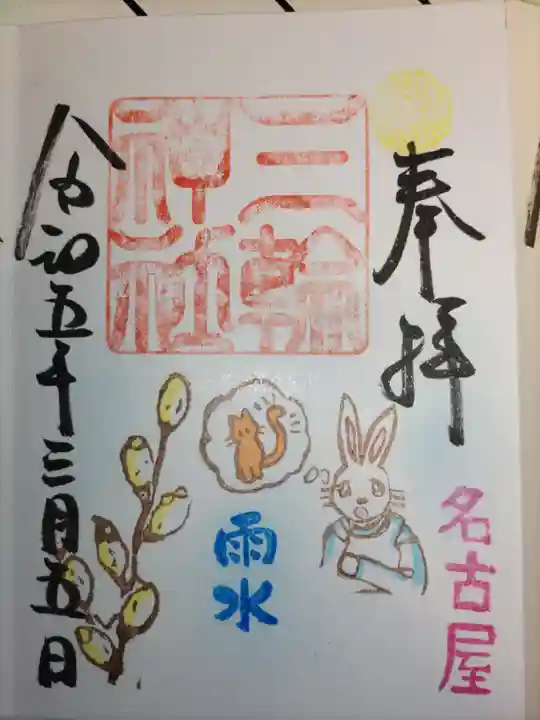 奉拝
名古屋
三輪
神社
雨水
令和五年三月五日